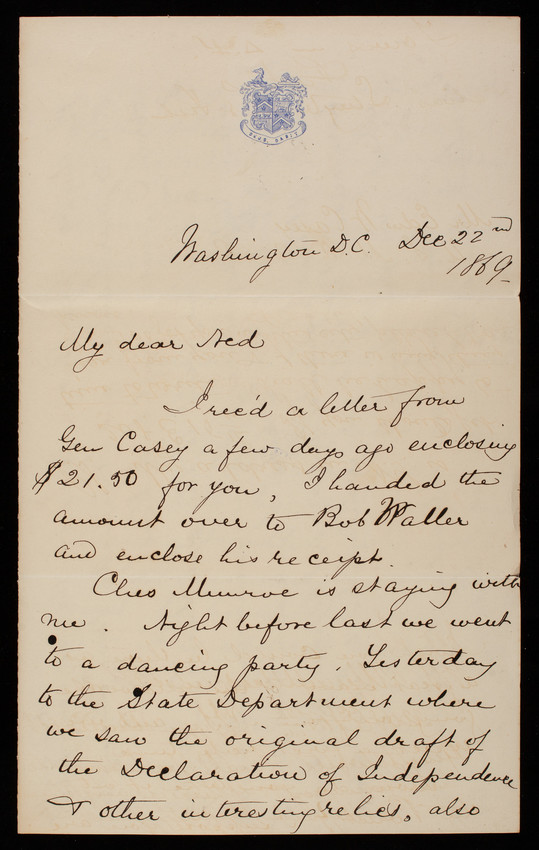 Washington D.C. Dec 22nd
1869
My dear Ned
I rec'd a letter from
Gen Casey a few days ago enclosing
$21.50 for you, I handed the
amount over to Bob Waller
and enclose his receipt.
Ches Munroe is staying with
me. Night before last we went
to a dancing party. Yesterday
to the State Department where
we saw the original draft of
the Declaration of Independence
& other interesting relics, also